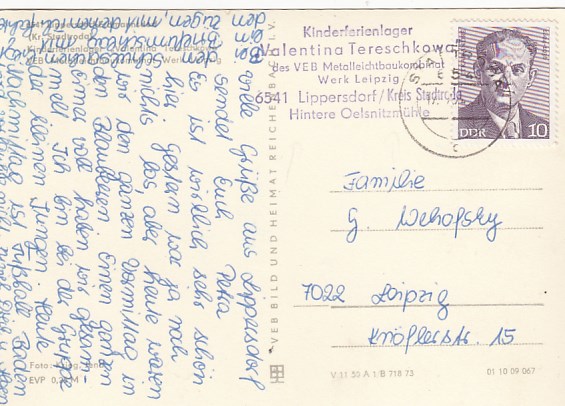 Kinderferienlager
Valentina Tereschkowa
des VEB Metalleichtbaukombinat
Werk Leipzig
6541 Lippersdorf/Kreis Stadtroda
Hintere Oelsnitzmühle
DDR 10
Familie
7022 Leipzig
Knöflerstr. 15
VEB BILD UND HEIMAT REICHENBACH I. V.
(Kr Stadtroda)
Kinderferienlager "Valentina Tereschkowa"
Werk Leipzig
viele Grüße aus Lippersdorf
sendet Euch Petra
Es ist wirklich sehr schön
hier, gestern war ja noch
nichts los, aber heute waren
wir den ganzen Vormittag in
den Blaubeeren. Einen ganzen
Eimer voll haben wir gesam-
melt. Ich bin bei der Gruppe
der kleinen Jungen. Heute
Nachmittag ist Fußball
Foto:
EVP
V 11 50 A 1/B 718 73
01 10 09 067